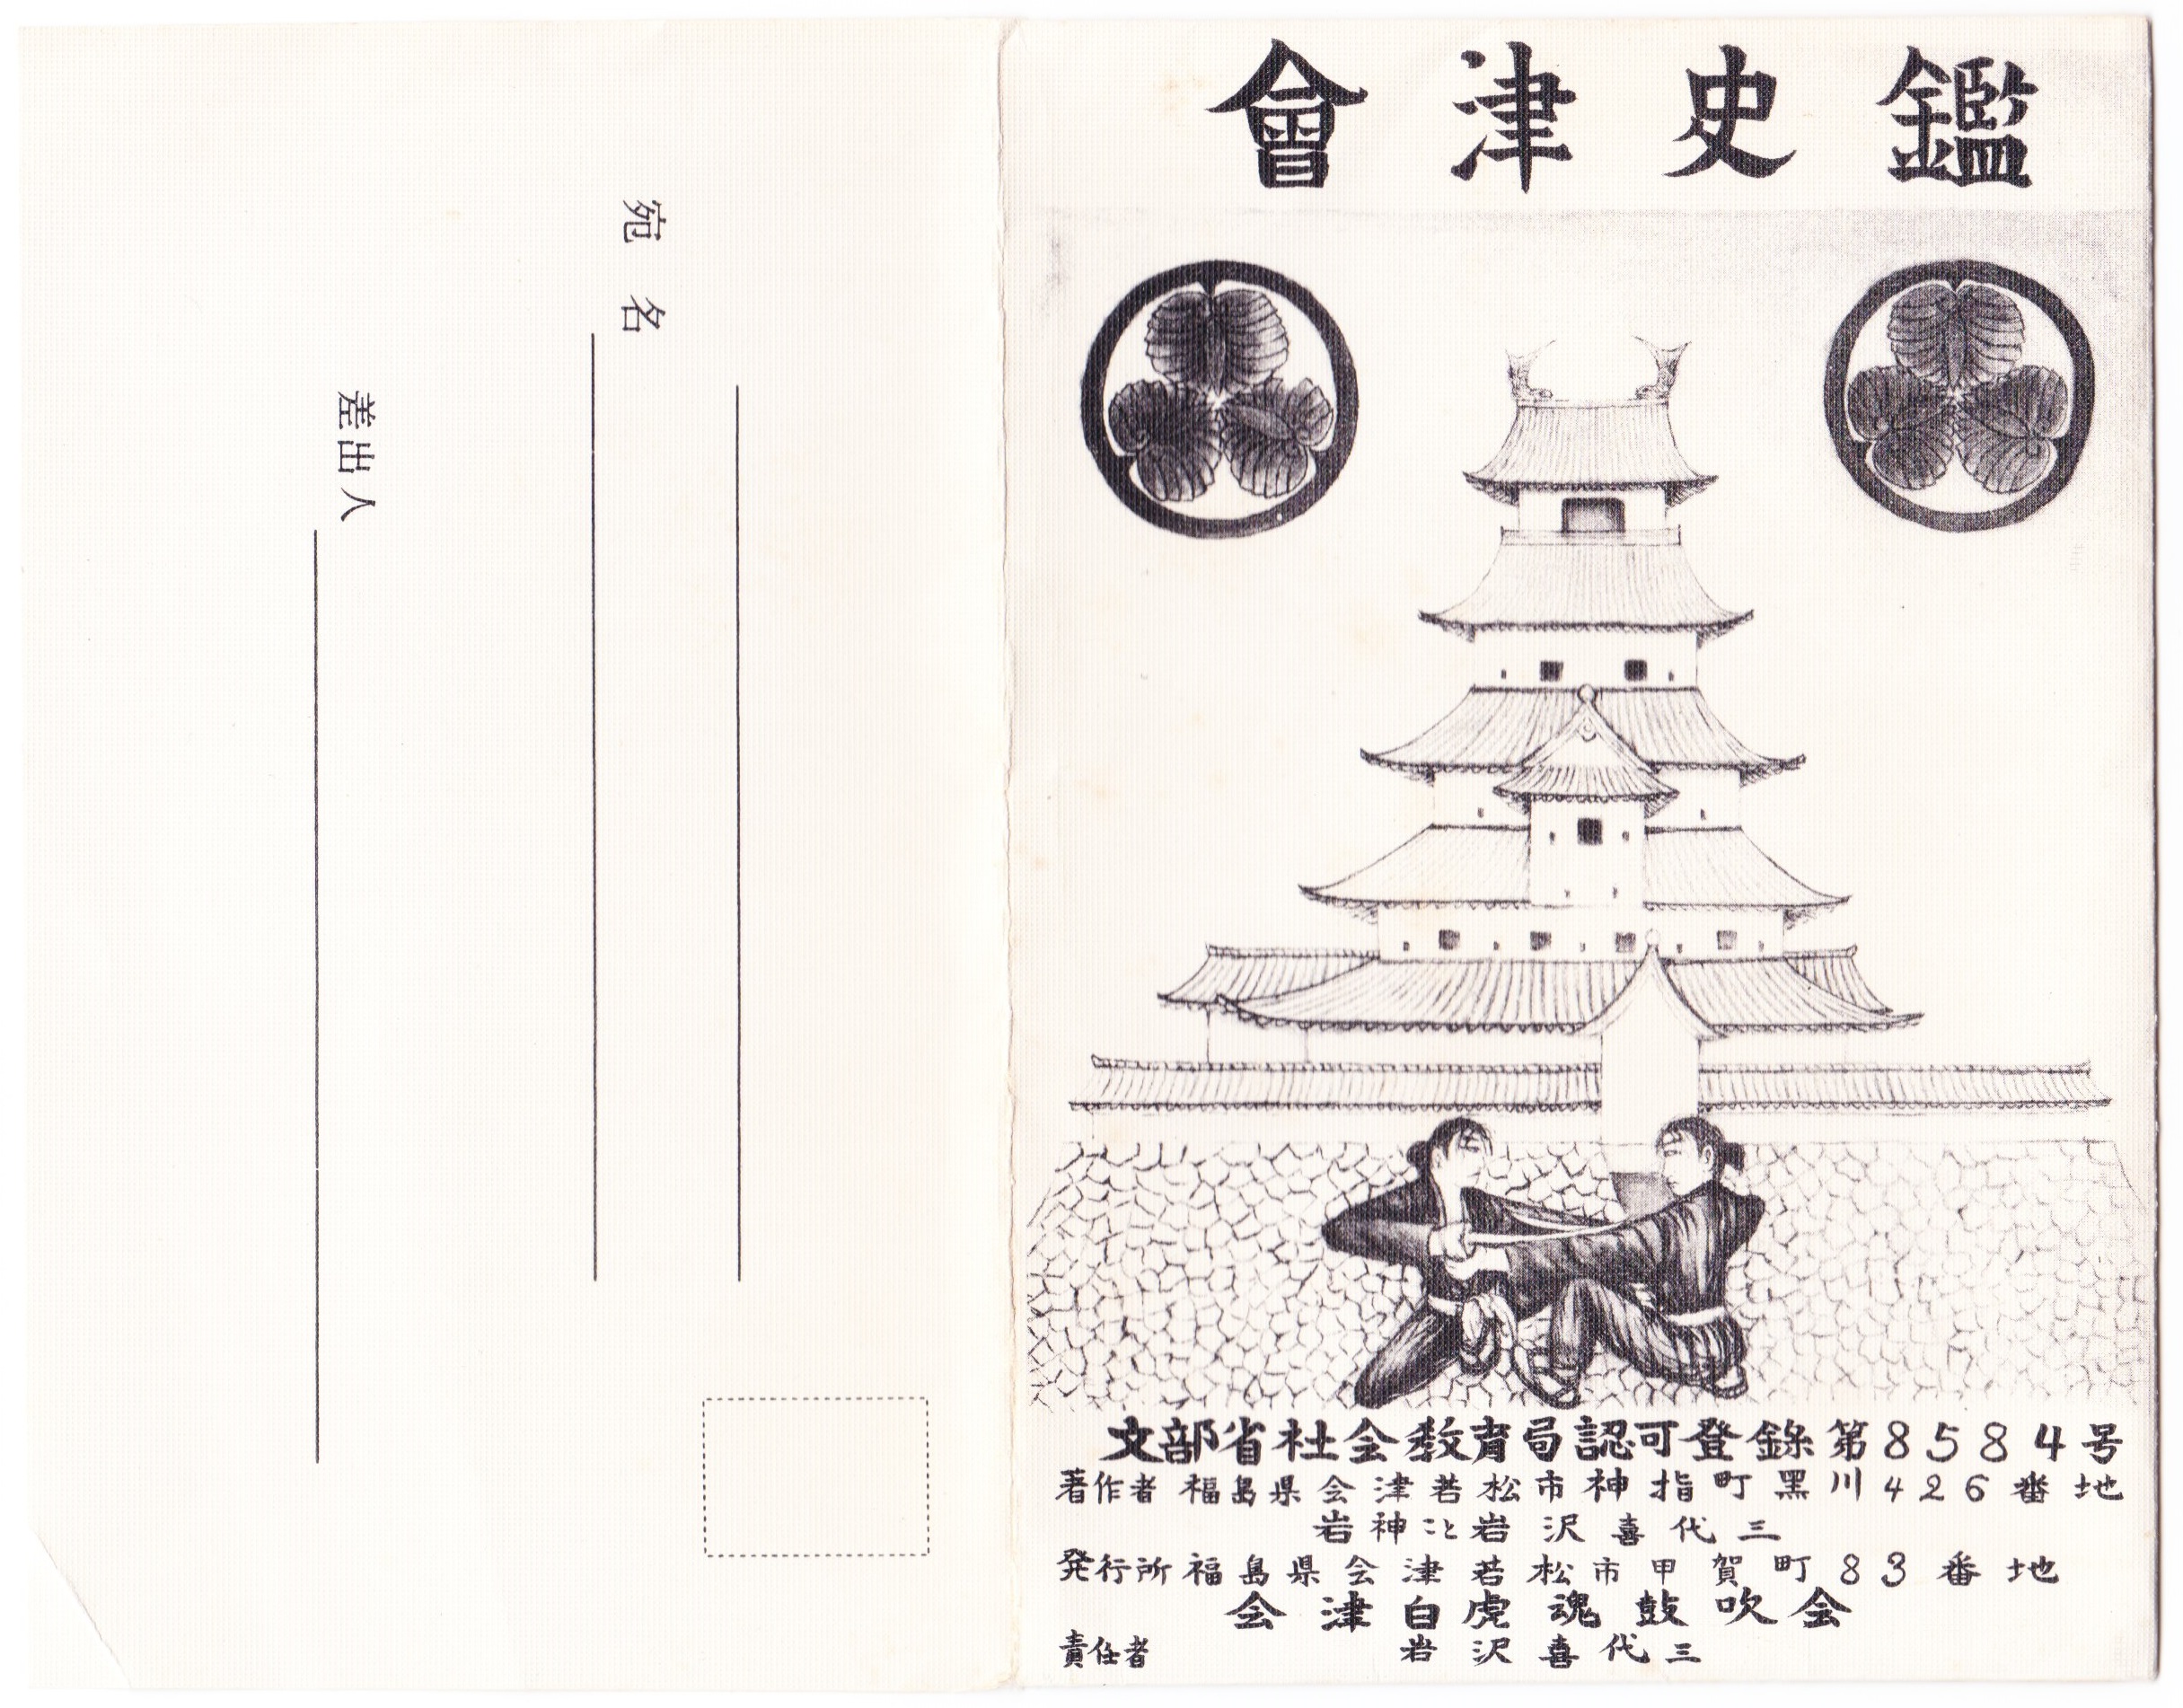 會津史鑑
文部省社会教育局認可登錄第8584号
著作者 福島県会津若松市神指町黒川426番地
岩神こと岩沢喜代三
発行所 福島県会津若松市甲賀町83番地
会津白虎魂鼓吹会
責任者 岩沢喜代三
宛名
差出人